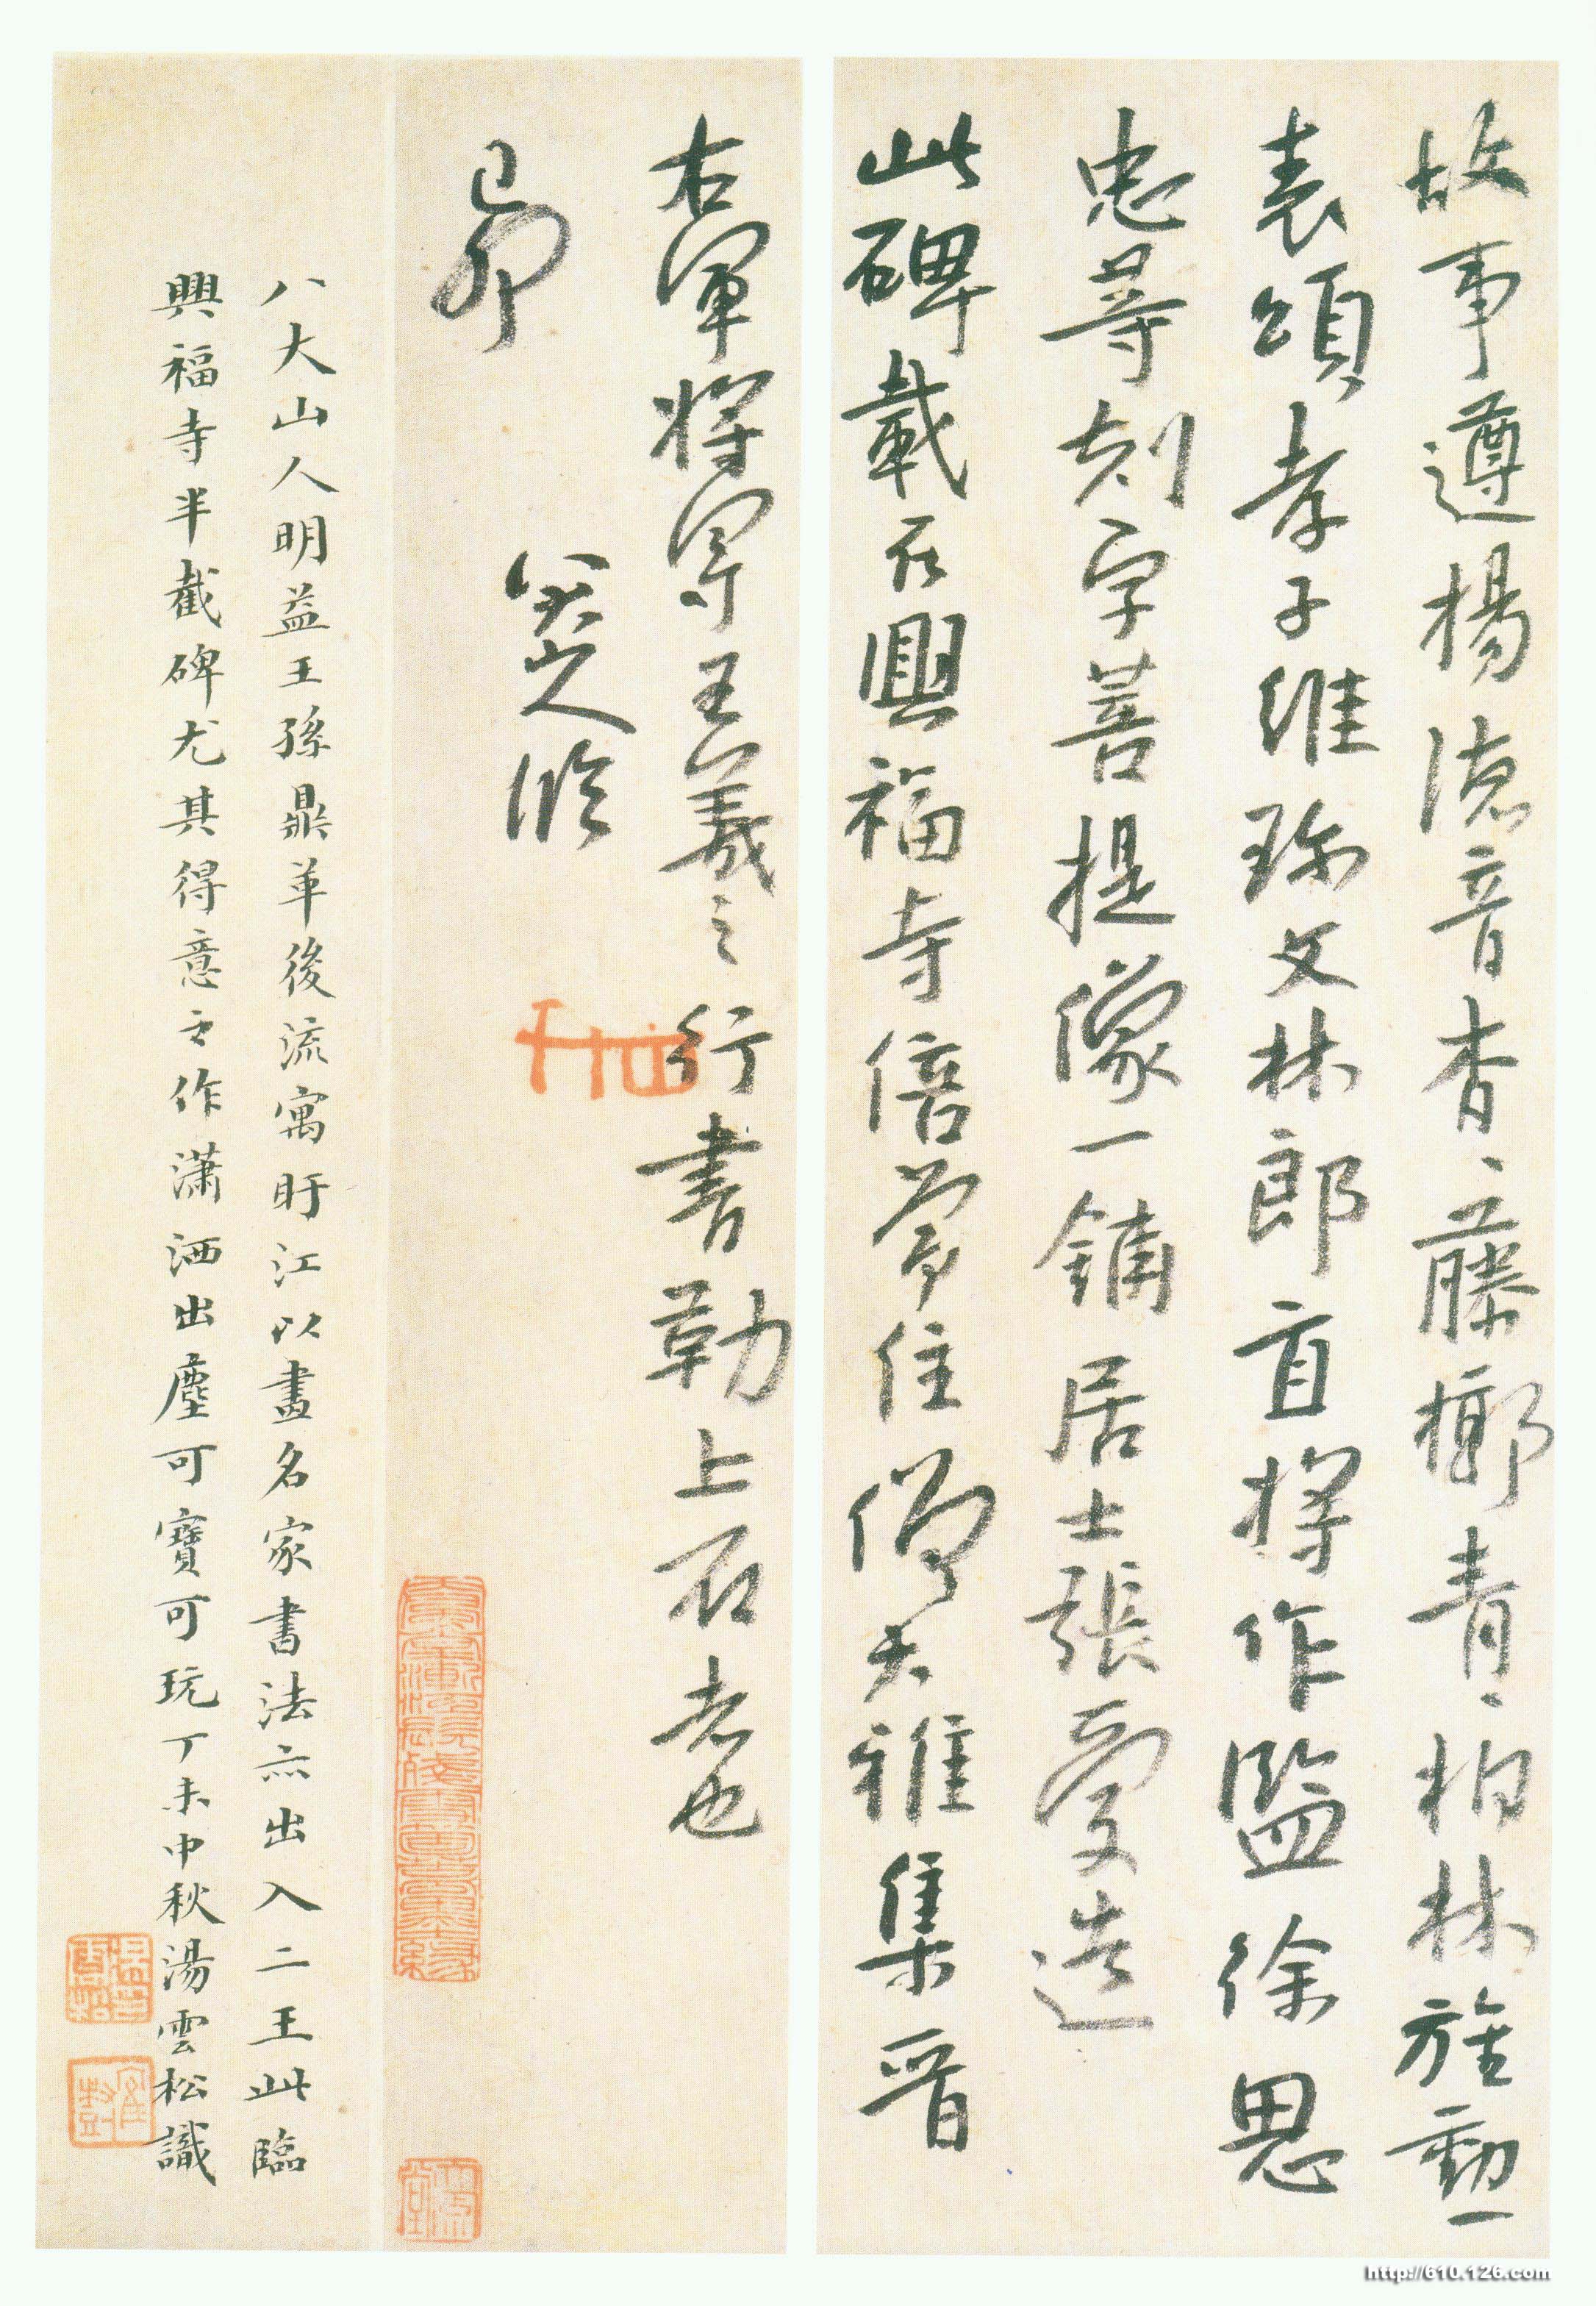 故事遵揚德音杳、藤㮂青、柏林旌勳一
表頌孝子維珎文林郎直將作監徐思
忠等刻字菩提像一鋪居士張愛造
此碑載在興福寺倍常住僧大雅集晉
右軍將軍王羲之行書勒上石者也
八大山人臨
八大山人明益王孫鼎革後流寓盱江以畫名家書法亦出入二王此臨
興福寺半截碑尤其得意之作瀟洒出塵可寶可玩丁未中秋湯雲松識
http://610.126.com